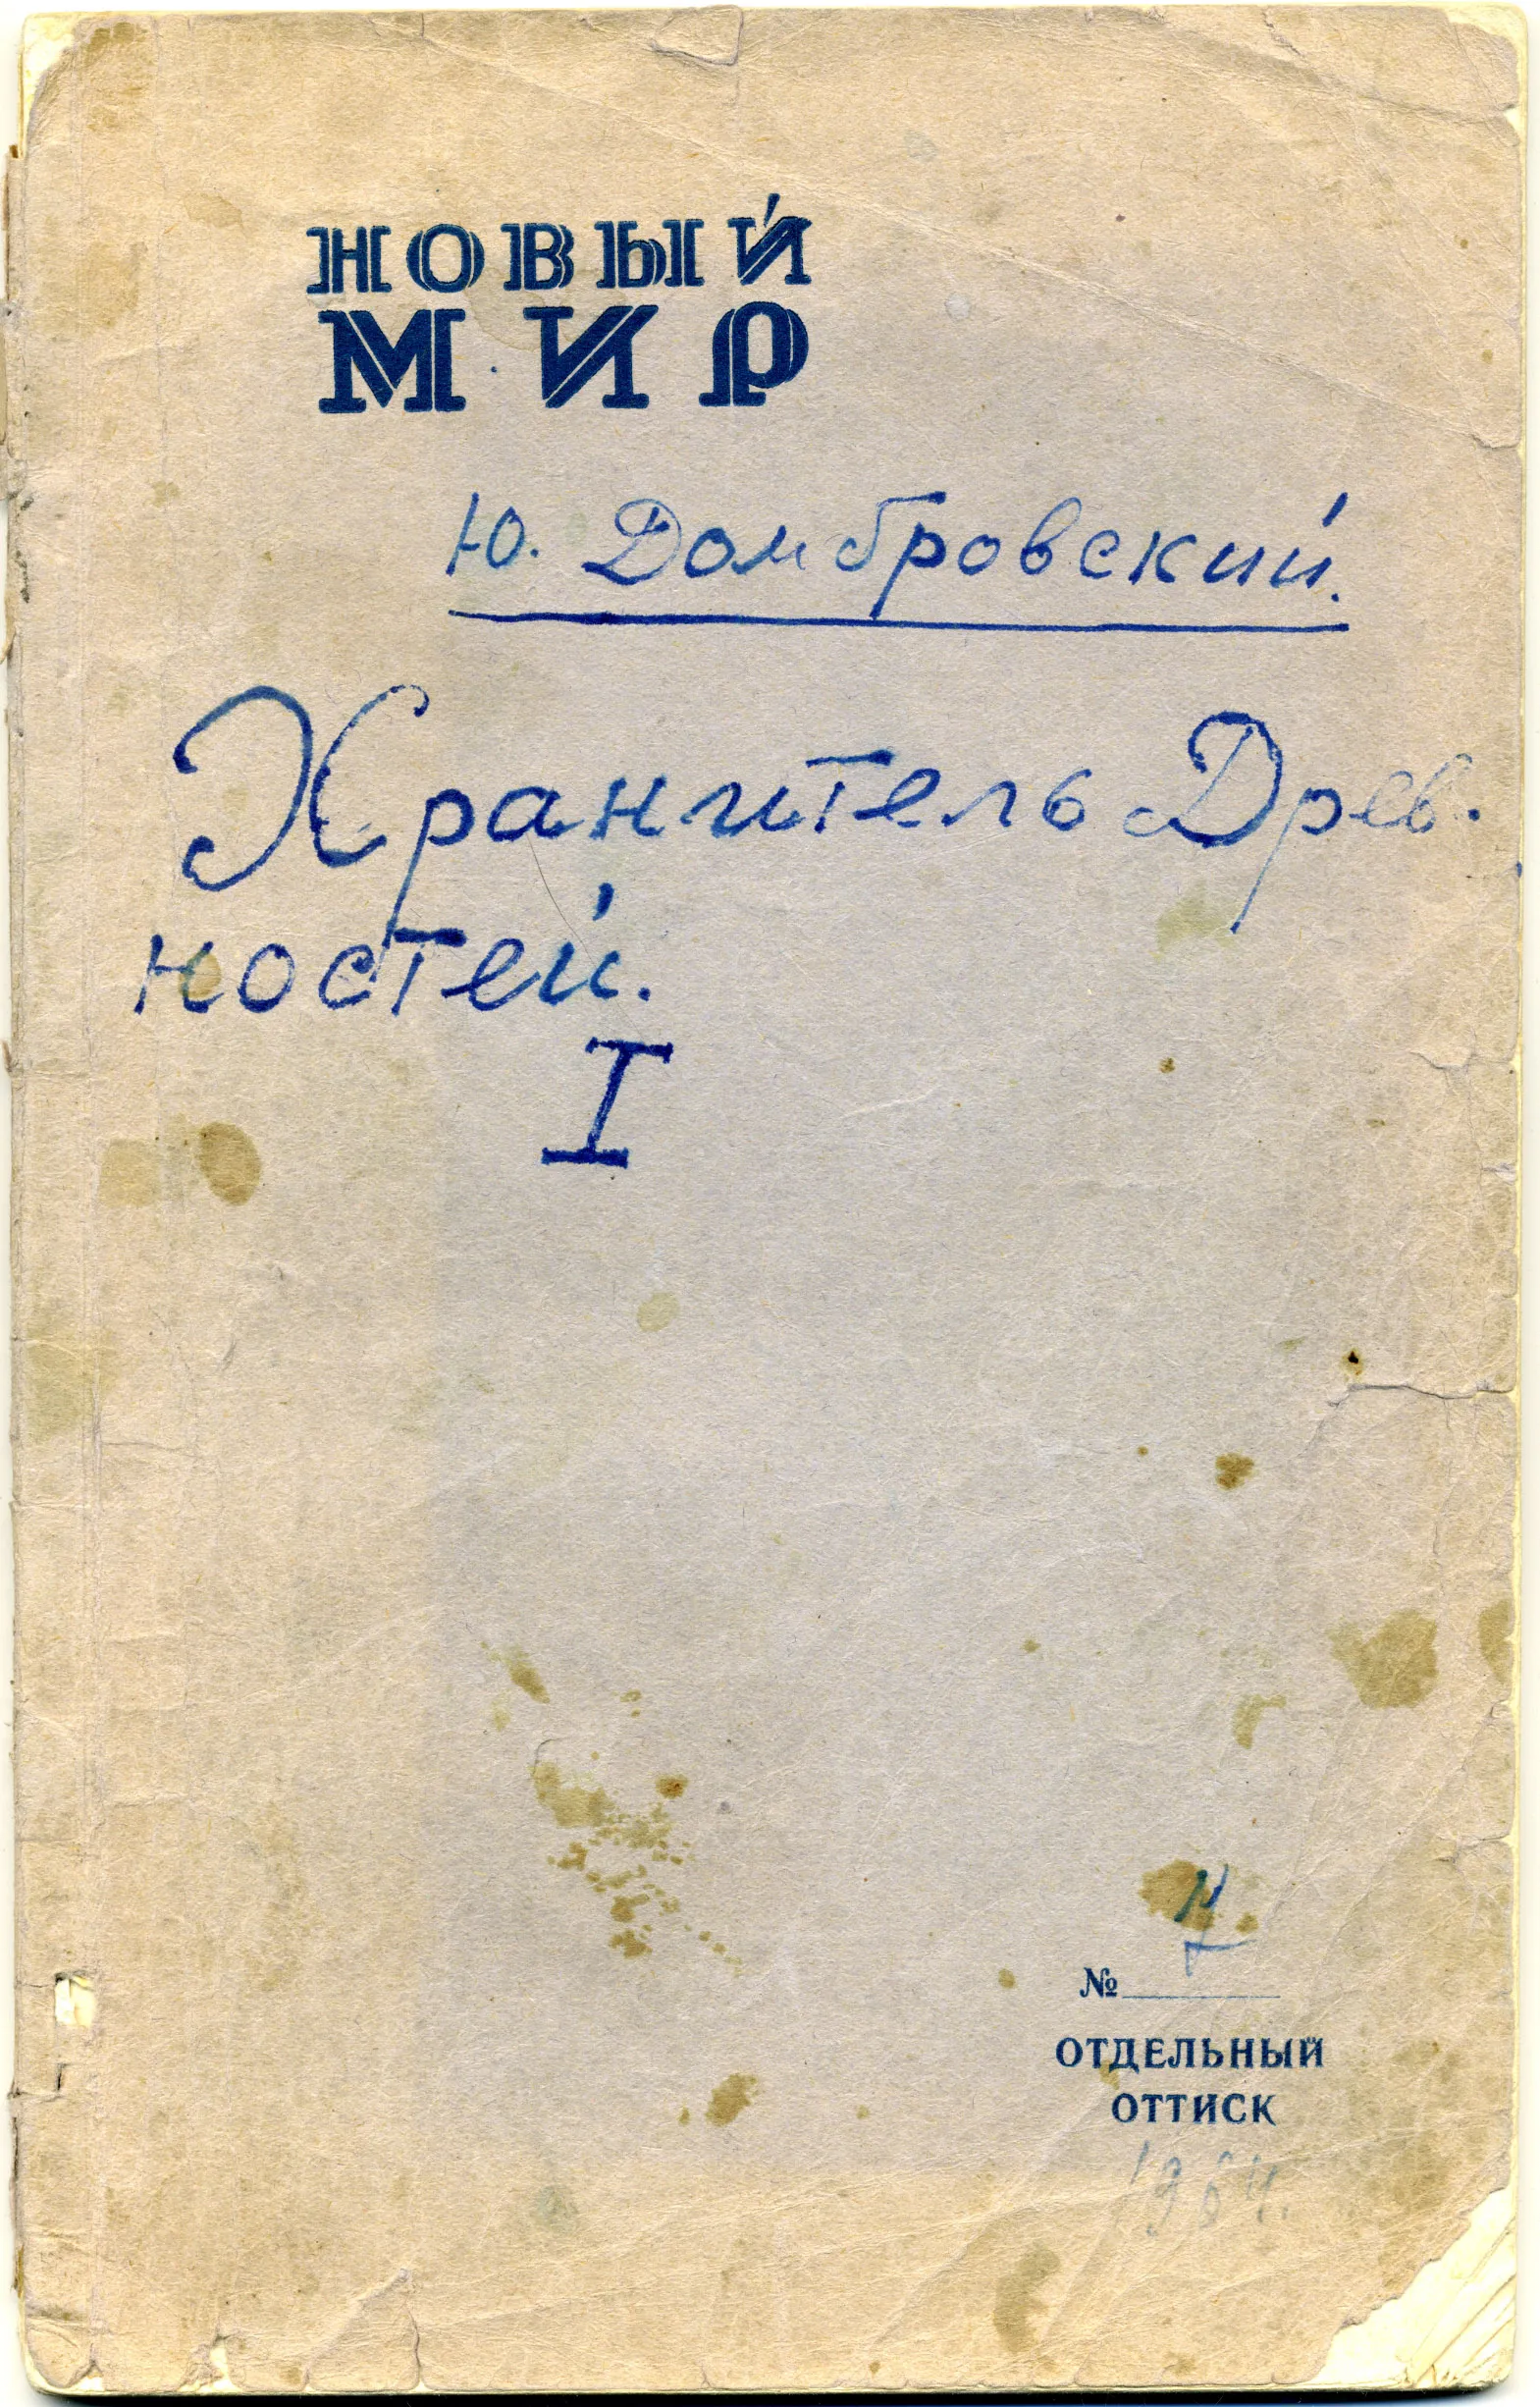 НОВЫЙ
МИР
Ю. Домбровский.
Хранитель Древ-
ностей.
I
7
№
ОТДЕЛЬНЫЙ
ОТТИСК
1964.